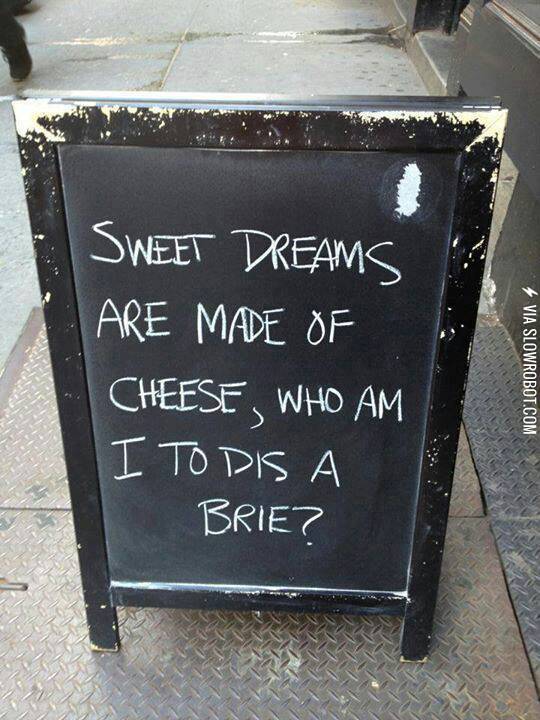 SWEET DREAMS
ARE MADE OF
CHEESE, WHO AM
I TO DIS A
BRIE?
VIA SLOWROBOT.COM